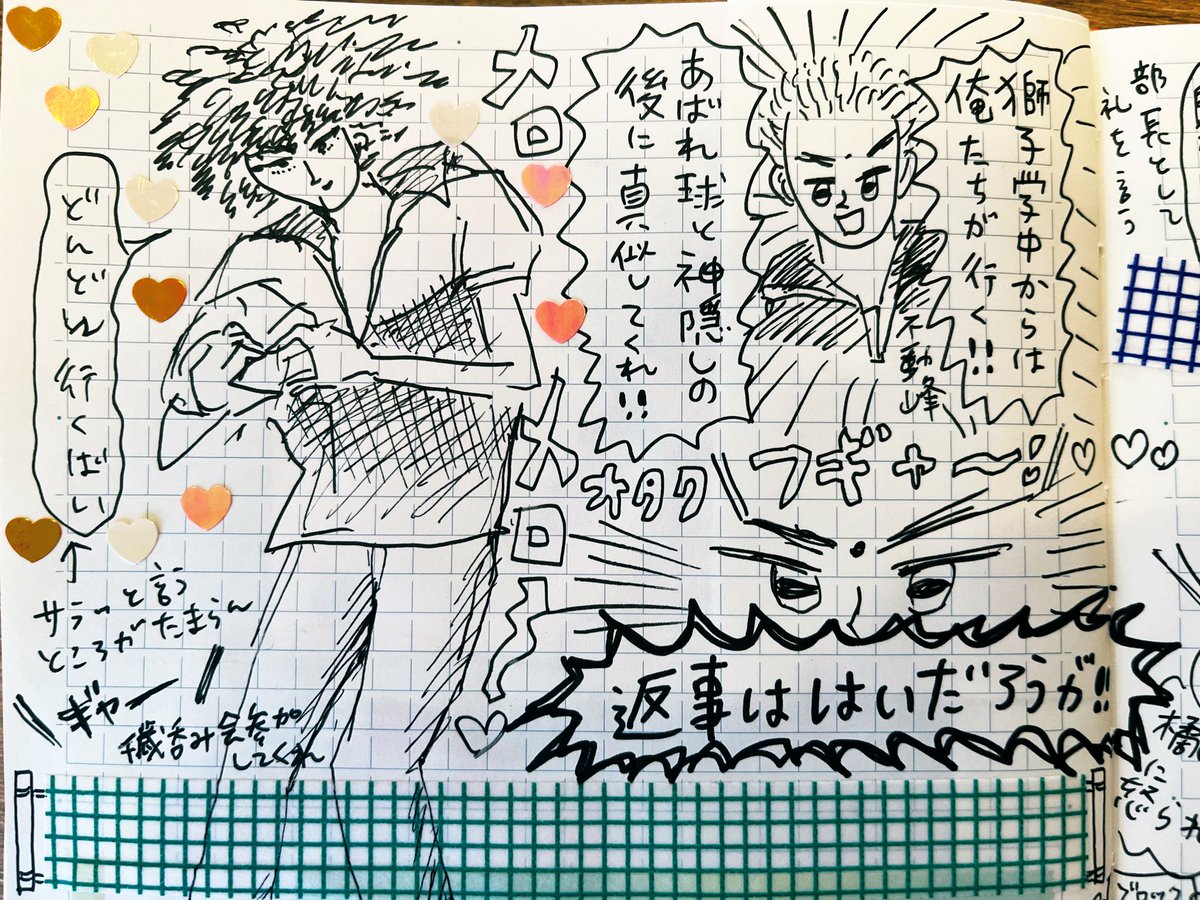 獅子学中からは
俺たちが行く!!
不動峰
あばれ球と神隠しの
後に真似してくれ!!
メロ
メロ
オタク
フギャー!!
返事ははいだろうが!!
どんどん行くばい
サラッと言う
ところがたまらん
ギャー
織呑み会参加
してくれ
部長として
礼を言う
橘
に怒ら
ブロック